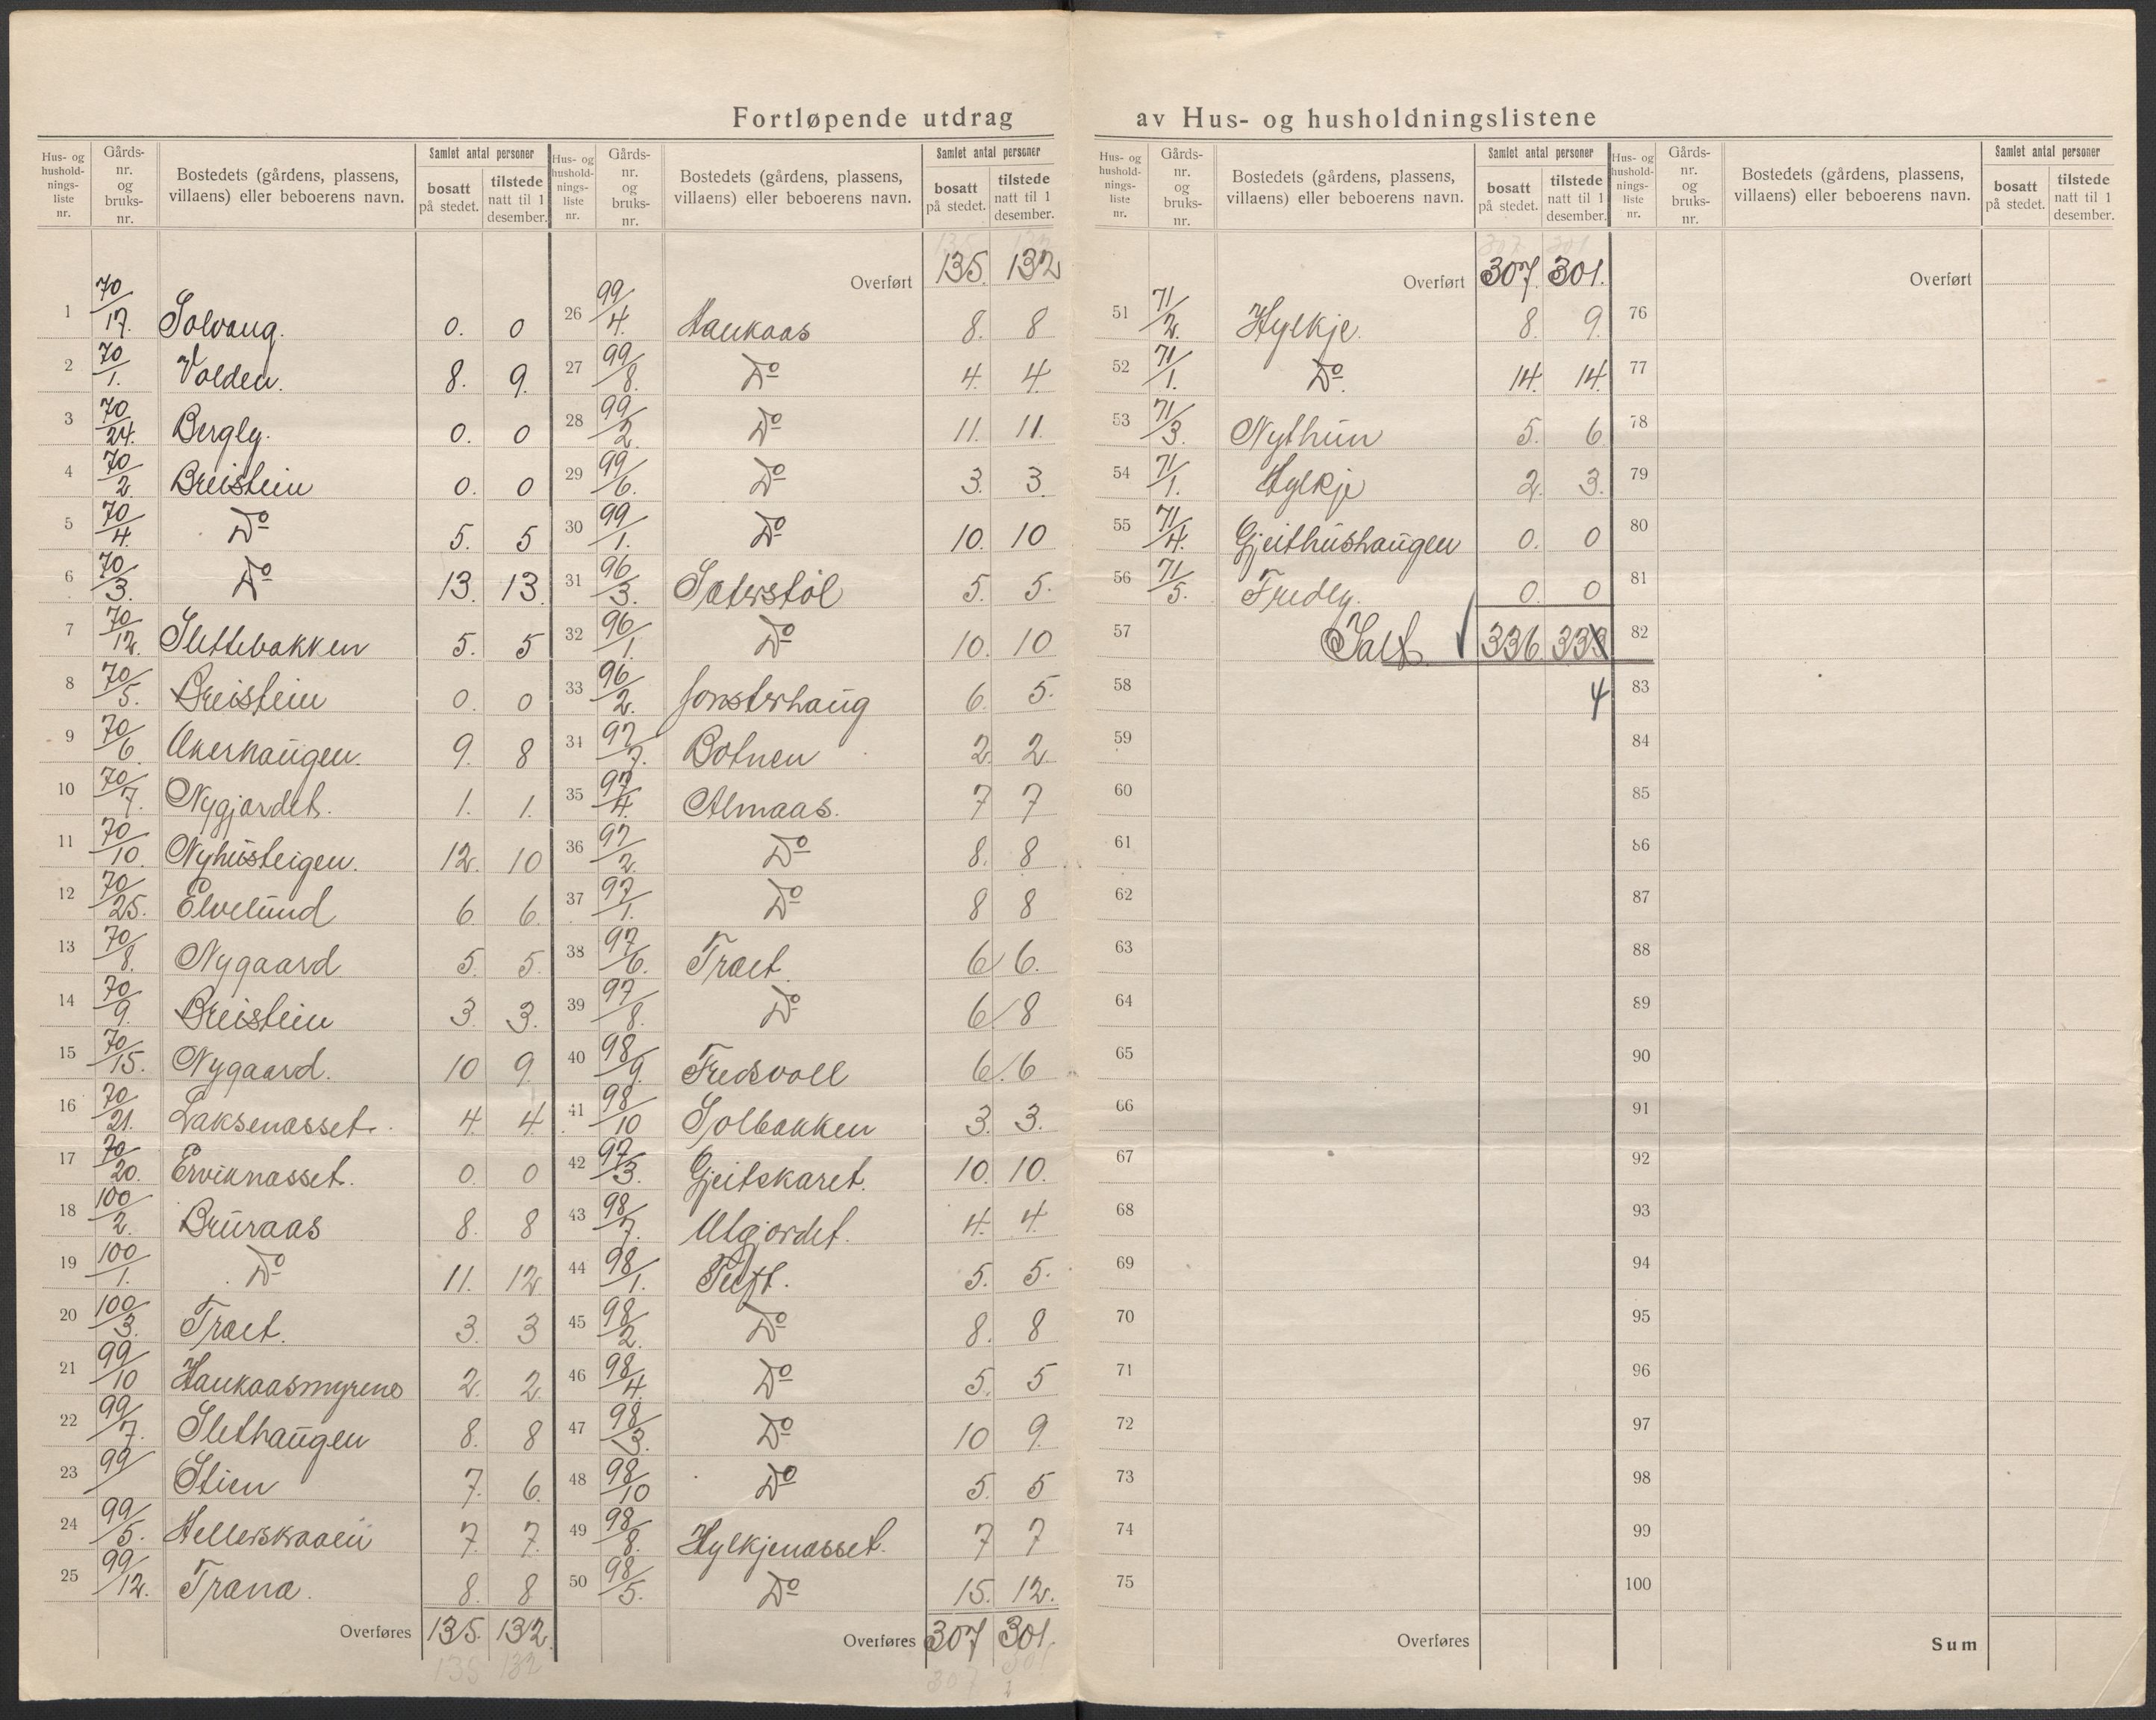 Fortløpende utdrag av Hus- og husholdningslistene
Hus- og husholdningsliste nr. | Gårds-nr. og bruks-nr. | Bostedets (gårdens, plassens, villaens) eller beboerens navn. | Samlet antal personer bosatt på stedet. | tilstede natt til 1 desember.
1 70/17. Solvang. 0. 0
2 70/1. Volden. 8. 9.
3 70/24. Bergly. 0. 0
4 70/2. Breistein 0. 0
5 70/4. Do 5. 5
6 70/3. Do 13. 13.
7 70/12. Slettebakken 5. 5
8 70/5. Breistein 0. 0
9 70/6. Akerhaugen. 9. 8
10 70/7. Nygjardet. 1. 1.
11 70/10. Nyhusteigen. 12. 10
12 70/25. Elvelund 6. 6.
13 70/8. Nygaard 5. 5.
14 70/9. Breistein 3. 3.
15 70/15. Nygaard. 10 9.
16 70/21. Laksenæsset. 4. 4.
17 70/20. Erviknæsset. 0. 0
18 100/2. Bruraas 8. 8
19 100/1. Do 11. 12
20 100/3. Træet. 3. 3
21 99/10 Haukaasmyrene 2. 2.
22 99/7. Slethaugen 8. 8
23 99/ Stien 7. 6.
24 99/5. Hellerskaalen 7. 7.
25 99/12. Trana. 8. 8
Overføres 135. 132.
135 132
Hus- og husholdningsliste nr. | Gårds-nr. og bruks-nr. | Bostedets (gårdens, plassens, villaens) eller beboerens navn. | Samlet antal personer bosatt på stedet. | tilstede natt til 1 desember.
Overført 135. 132
26 99/4. Haukaas 8. 8
27 99/8. Do 4. 4.
28 99/2. Do 11. 11.
29 99/6. Do 3. 3.
30 99/1. Do 10. 10
31 96/3. Sæterstøl 5. 5.
32 96/1. Do 10. 10
33 96/2. Jonsterhaug 6. 5.
34 97/7. Botnen 2. 2
35 97/4. Almaas. 7 7
36 97/2. Do 8. 8
37 97/1. Do 8 8
38 97/6. Træet. 6 6.
39 97/8. Do 6 8
40 98/9. Fredsvoll 6. 6
41 98/10 Solbakken 3. 3.
42 97/3. Gjeitskaret. 10. 10.
43 98/7. Utgjordet. 4. 4.
44 98/1. Tuft. 5. 5.
45 98/2. Do 8. 8
46 98/4. Do 5. 5
47 98/3. Do 10 9.
48 98/10 Do 5. 5
49 98/8. Hylkjenæsset. 7 7
50 98/5. Do 15. 12.
Overføres 307 301.
307 301
Hus- og husholdningsliste nr. | Gårds-nr. og bruks-nr. | Bostedets (gårdens, plassens, villaens) eller beboerens navn. | Samlet antal personer bosatt på stedet. | tilstede natt til 1 desember.
Overført 307. 301.
51 71/2. Hylkje. 8. 9.
52 71/1. Do. 14. 14.
53 71/3. Nythun 5. 6
54 71/1. Hylkje 2. 3.
55 71/4. Gjeithushaugen 0. 0
56 71/5. Fredly. 0. 0
57 Talt. 336 333
58 4
59
60
61
62
63
64
65
66
67
68
69
70
71
72
73
74
75
Overføres
Hus- og husholdningsliste nr. | Gårds-nr. og bruks-nr. | Bostedets (gårdens, plassens, villaens) eller beboerens navn. | Samlet antal personer bosatt på stedet. | tilstede natt til 1 desember.
Overført
76
77
78
79
80
81
82
83
84
85
86
87
88
89
90
91
92
93
94
95
96
97
98
99
100
Sum